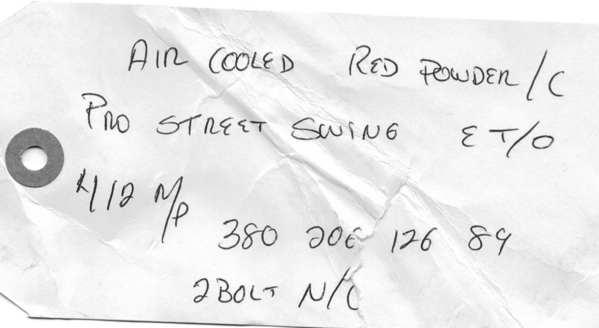 AIR COOLED RED POWDER/C
PRO STREET SWING E T/O
4/12 M/P
380 206 126 89
2 BOLT N/C